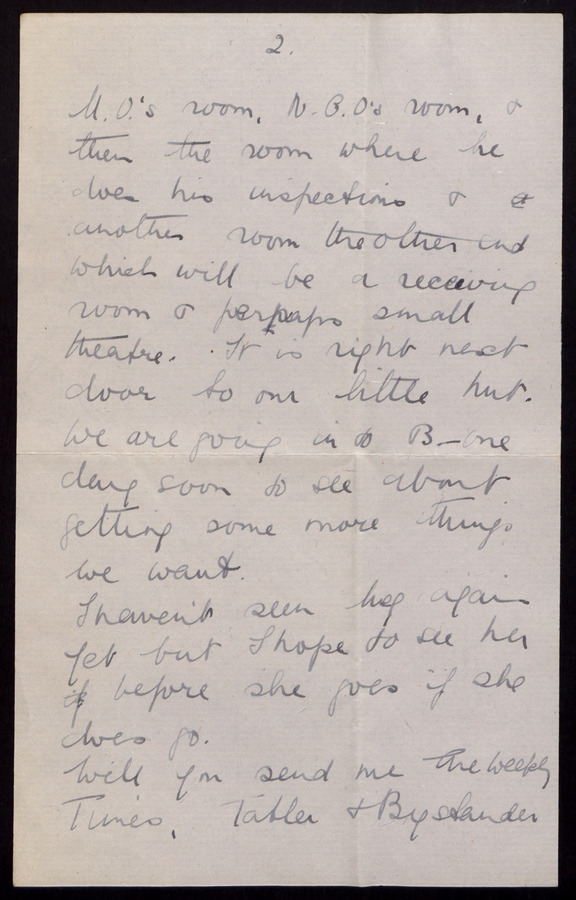 2.
M.O.'s room, N.C.O's room, &
then the room where he
does his inspections &
another room the other end
which will be a receiving
room & perhaps small
theatre. It is right next
door to our little hut.
We are going into B— one
day soon to see about
getting some more things
we want.
I haven't seen again
yet but I hope to see her
if before she goes if she
does go.
Will you send me the weekly
Times, Tatler & Bystander